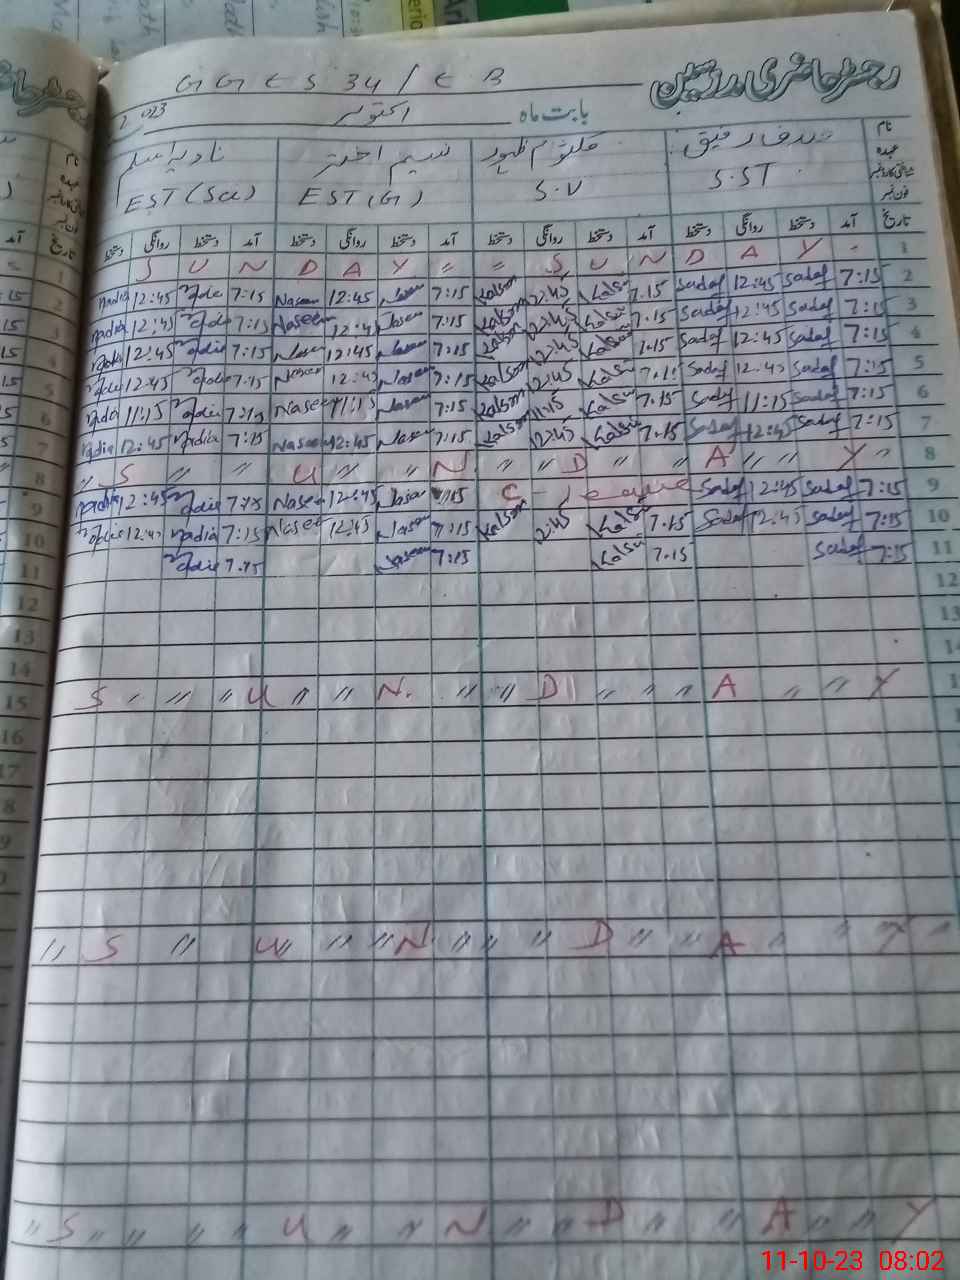 GGES 34/EB
رجسٹر حاضری مدرسین
2023 اکتوبر بابت ماہ
نام صدف رفیق کلثوم ظہور نسیم اختر نادیہ اسلم
عہدہ S.ST S.V EST (G) EST (Sci)
شناختی کارڈ نمبر
فون نمبر
تاریخ آمد دستخط روانگی دستخط آمد دستخط روانگی دستخط آمد دستخط روانگی دستخط آمد دستخط روانگی دستخط
S U N D A Y " " S U N D A Y " 1
Nadia 12:45 Nadia 7:15 Naseem 12:45 Naseem 7:15 Kalsom 12:45 Kalsom 7.15 Sadaf 12:45 Sadaf 7:15 2
Nadia 12:45 Nadia 7:15 Naseem 12:45 Naseem 7:15 Kalsom 12:45 Kalsom 7.15 Sadaf 12:45 Sadaf 7:15 3
Nadia 12:45 Nadia 7:15 Naseem 12:45 Naseem 7:15 Kalsom 12:45 Kalsom 7.15 Sadaf 12:45 Sadaf 7:15 4
Nadia 12:45 Nadia 7:15 Naseem 12:45 Naseem 7:15 Kalsom 12:45 Kalsom 7.15 Sadaf 12:45 Sadaf 7:15 5
Nadia 11:15 Nadia 7:15 Naseem 11:15 Naseem 7:15 Kalsom 11:15 Kalsom 7.15 Sadaf 11:15 Sadaf 7:15 6
Nadia 12:45 Nadia 7:15 Naseem 12:45 Naseem 7:15 Kalsom 12:45 Kalsom 7.15 Sadaf 12:45 Sadaf 7:15 7
" S " " U " " N " " D " " A " " Y " 8
Nadia 12:45 Nadia 7:15 Naseem 12:45 Naseem 7:15 C-leave Sadaf 12:45 Sadaf 7:15 9
Nadia 12:45 Nadia 7:15 Naseem 12:45 Naseem 7:15 Kalsom 12:45 Kalsom 7.15 Sadaf 12:45 Sadaf 7:15 10
Nadia 7:15 Naseem 7:15 Kalsom 7.15 Sadaf 7:15 11
12
13
14
S " " " U " " N. " " D " " " A " " Y
" S " U " " " N " " " D " " A " " Y "
" S " " " U " " N " " D " " A " " Y
11-10-23 08:02